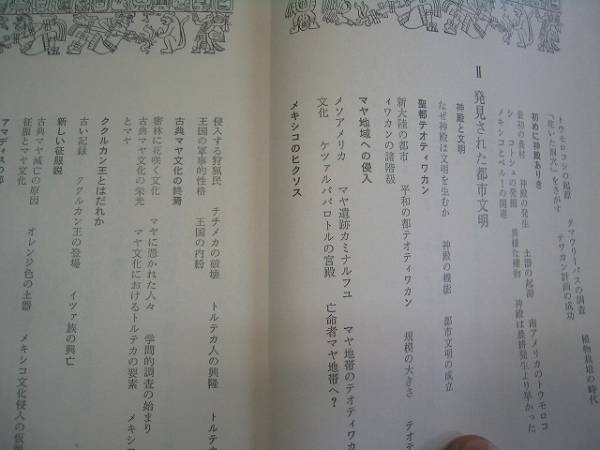 トウモロコシの起源　タマウリーパスの調査　植物栽培の時代
「乾いた潟沢」をさがす　テワカン計画の成功
初めに神殿ありき
最初の農村　神殿の発生　土器の起源　南アメリカのトウモロコ
シ　コトーシュの発掘　異様な建物　神殿は農耕発生より早かった
メキシコとペルーの関連
Ⅱ　発見された都市文明
神殿と文明
なぜ神殿は文明を生むか　神殿の機能　都市文明の成立
聖都テオティワカン
新大陸の都市　平和の都テオティワカン　規模の大きさ　テオテ
ィワカンの諸階級
マヤ地域への侵入
メソアメリカ　マヤ遺跡カミナルフユ　マヤ地帯のテオティワカン
文化　ケツァルパパロトルの宮殿　亡命者マヤ地帯へ？
メキシコのヒクソス
侵入する狩猟民　チチメカの破壊　トルテカ人の興隆　トルテ
王国の軍事的性格　王国の内紛
古典マヤ文化の終焉
密林に花咲く文化　マヤに憑かれた人々　学問的調査の始まり
古典マヤ文化の栄光　マヤ文化におけるトルテカの要素　メキシ
とマヤ
ククルカン王とはだれか
古い記録　ククルカン王の登場　イツァ族の興亡
新しい征服説
古典マヤ滅亡の原因　オレンジ色の土器　メキシコ文化侵入の仮
征服とマヤ文化
アマディスの